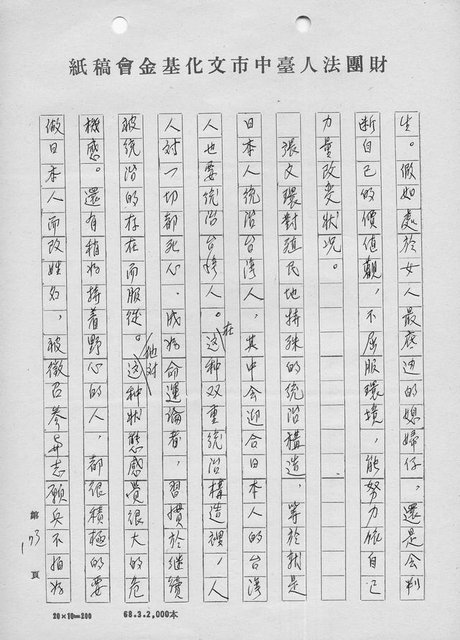 財團法人臺中市文化基金會稿紙
生。假如處於女人最底边的媳婦仔，還是会判
断自己的價值觀，不屈服環境，能努力依自己
力量改变狀况。
張文環對殖民地特殊的統治構造，等於就是
日本人統治台湾人，其中会迎合日本人的台湾
人也要統治台湾人。在这种双重統治構造裡，人
人对一切都死心，成為命運論者，習慣於继續
被統治的存在而服從。他对这种狀態感覺很大的危
機感。還有稍為持着野心的人，都很積極的要
做日本人而改姓名，被徵召参与志願兵不怕為
第173頁
20×10=200
68.3.2,000本